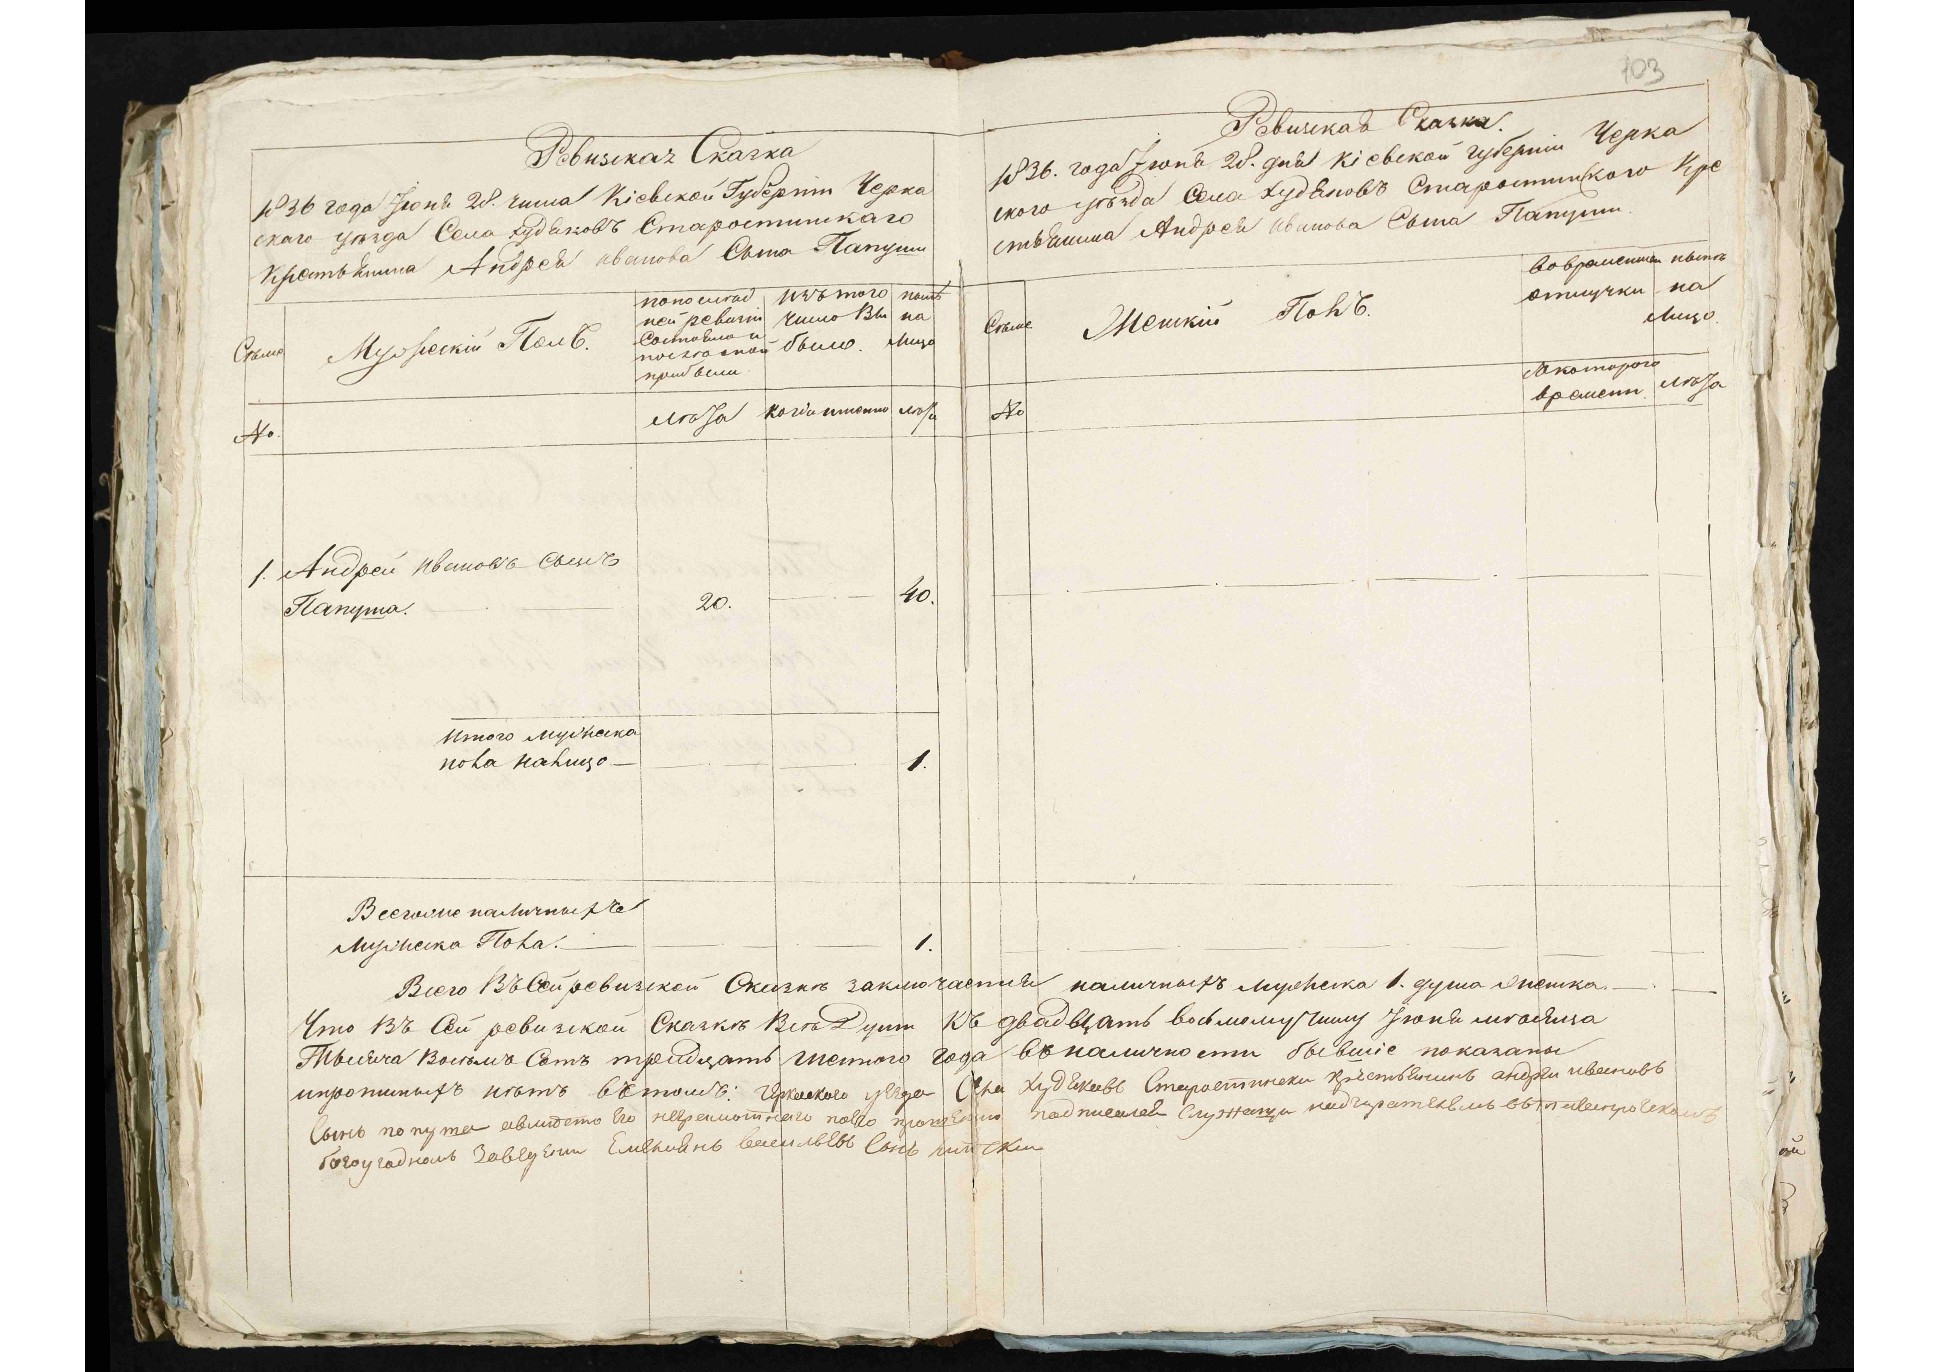 103
Ревизкая Сказка
1836 года Іюня 28. числа Кіевской Губерніи Черка
скаго уезда Села Худяковъ Старостинскаго
Крестьянина Андрея Иванова Сына Папуши
Семьи
Мужескій Полъ.
по послед
ней ревизіи
Состояло и
после оной
прибыли
Изъ того
число Вы
было.
ныне
на
лицо
№.
лета
когда именно
лета
1. Андрей Ивановъ Сынъ
Папуша.
20.
40.
Итого мужеска
пола налицо
1.
Всего же наличныхъ
мужеска Пола.
1.
Ревизкая Сказка.
1836. года Іюня 28. дня Кіевской губерніи Черка
ского уезда Села Худяковъ Старостинского Кре
стьянина Андрея Иванова Сына Папуши.
Семье
Женскій Полъ.
во временной
отлучки
ныне
на
лицо.
№
с которого
времени.
лета
Всего Въ Сей ревизской Сказке заключается наличныхъ мужеска 1. душа женска.
Что Въ Сей ревизской Сказке Все Души Къ двадцать восьмому числу Іюня месяца
Тысяча Восемъ Сотъ тридцать шестого года въ наличности бывшіе показаны
и прописныхъ нетъ въ томъ: Черкаского уезда Села Худяковъ Старостински крестьянинъ андрей ивановъ
Сынъ попуша а вместо его неграмотного по его прошению подписался Служащи надзирателемъ въ
богоугодномъ Заведении Емельянъ васильевъ Сынъ